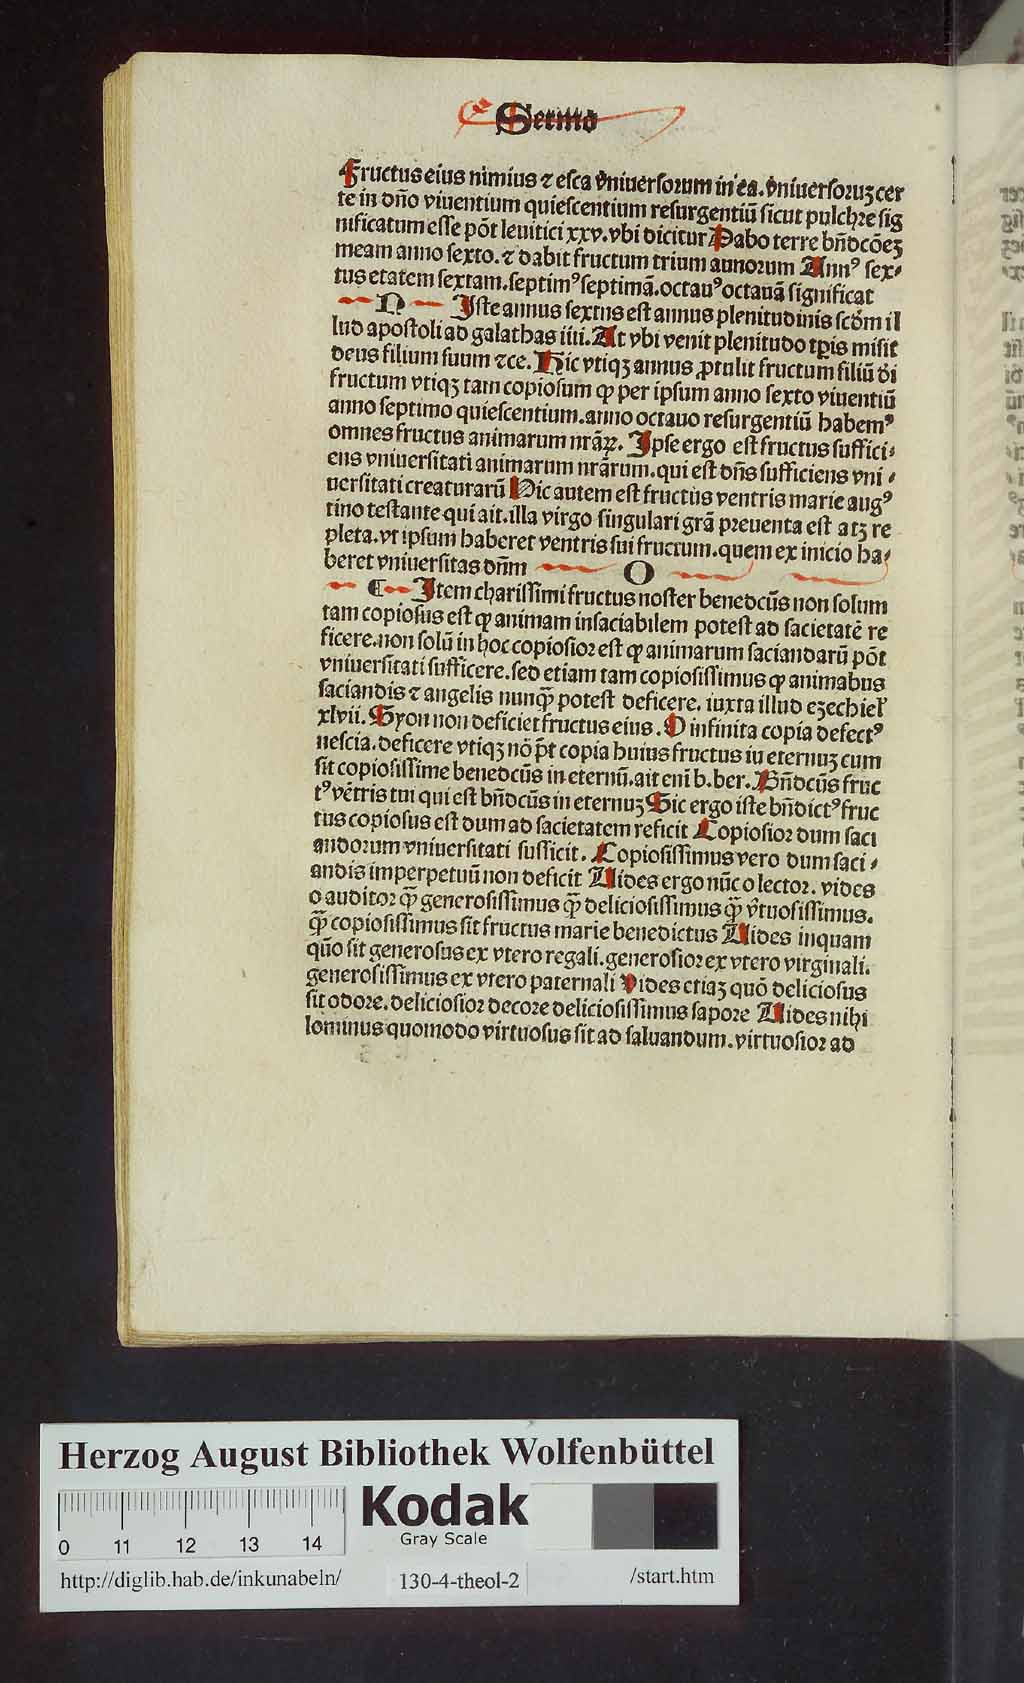 Sermo
Fructus eius nimius ⁊ esca vniuersorum in ea. vniuersoruꝫ cer
te in dn̄o viuentium quiescentium resurgentiū sicut pulchre sig
nificatum esse pōt leuitici xxv. vbi dicitur Dabo terre bn̄dcōeꝫ
meam anno sexto. ⁊ dabit fructum trium annorum Annꝰ sex⸗
tus etatem sextam. septimꝰ septimā. octauꝰ octauā significat
N Iste annus sextus est annus plenitudinis scd̄m il
lud apostoli ad galathas iiii. At vbi venit plenitudo tp̄is misit
deus filium suum ⁊ce. Hic vtiqꝫ annus ꝓtulit fructum filiū dei
fructum vtiqꝫ tam copiosum ꝙ per ipsum anno sexto viuentiū
anno septimo quiescentium. anno octauo resurgentiū habemꝰ
omnes fructus animarum nrāꝝ. Ipse ergo est fructus suffici⸗
ens vniuersitati animarum nrārum. qui est dn̄s sufficiens vni⸗
uersitati creaturarū Hic autem est fructus ventris marie augꝰ
tino testante qui ait. illa virgo singulari grā preuenta est atꝫ re
pleta. vt ipsum haberet ventris sui fructum. quem ex inicio ha⸗
beret vniuersitas dn̄m O
¶ Item charissimi fructus noster benedcūs non solum
tam copiosus est ꝙ animam insaciabilem potest ad sacietatē re
ficere. non solū in hoc copiosior est ꝙ animarum saciandarū pōt
vniuersitati sufficere. sed etiam tam copiosissimus ꝙ animabus
saciandis ⁊ angelis nunꝙ̄ potest deficere. iuxta illud ezechiel̓
xlvii. Syon non deficiet fructus eius. O infinita copia defectꝰ
nescia. deficere vtiqꝫ nō pt̄ copia huius fructus in eternuꝫ cum
sit copiosissime benedcūs in eternū. ait enī b. ber. Bn̄dcūs fruc
tꝰ vētris tui qui est bn̄dcūs in eternuꝫ Sic ergo iste bn̄dictꝰ fruc
tus copiosus est dum ad sacietatem reficit Copiosior dum saci
andorum vniuersitati sufficit. Copiosissimus vero dum saci⸗
andis imperpetuū non deficit Uides ergo nūc o lector. vides
o auditor ꝙ̄ generosissimus ꝙ̄ deliciosissimus ꝙ̄ v̓tuosissimus.
ꝙ̄ copiosissimus sit fructus marie benedictus Uides inquam
quō sit generosus ex vtero regali. generosior ex vtero virginali.
generosissimus ex vtero paternali Uides etiaꝫ quō deliciosus
sit odore. deliciosior decore deliciosissimus sapore Uides nihi
lominus quomodo virtuosus sit ad saluandum. virtuosior ad
Herzog August Bibliothek Wolfenbüttel
Kodak
Gray Scale
0 11 12 13 14
http://diglib.hab.de/inkunabeln/ 130-4-theol-2 /start.htm